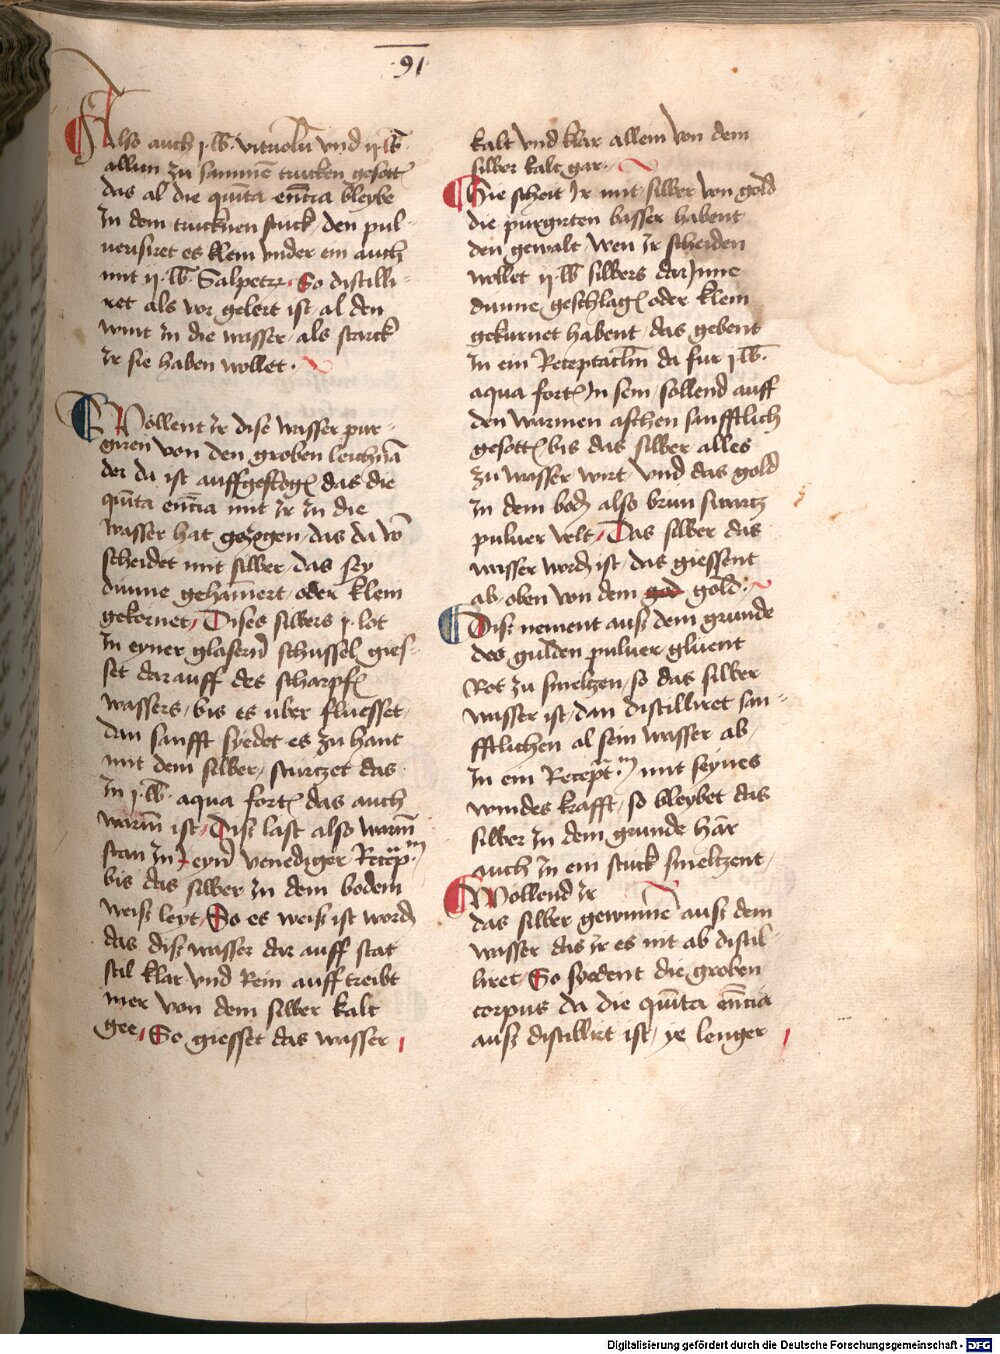 ·91·
Also auch j lb. vitriolū vnd ij lb.
allun zu sammē trucken gesott
das al die quīta encīa bleybe
Jn dem trucknen stuck, den pul-
uerisiret es klein vnder ein auch
mit ij. lb. Salpetr. So distilli-
ret als vor gelert ist, al den
wint Jn die wasser, als starck
Jr sie haben wollet.
Wöllent Jr dise wasser pur-
giren von den groben leichnā
der da ist auffgeflogē das die
quīta encīa mit Jr Jn die
wasser hat gezogen, das da vō
scheidet mit silber, das sey
dunne gehāmert, oder klein
gekornet, Dises silbers j. lot
Jn eyner glaserīn schussel gies-
set darauff des scharpfē
wassers, bis es uber fluesset,
dan sanfft syedet es zu hant
mit dem silber, sturtzet das
Jn j. lb. aqua fortē das auch
warm ist, Disz last also warm
stan Jn eynē venediger Recep.m
bis das silber Jn dem bodem
weisz leyt, So es weisz ist wordē
das disz wasser dar auff stat
stil klar vnd Rein auff treibt
mer von dem silber kalt
gee, So giesset das wasser
kalt vnd klar allem von dem
silber kalt gar.
Die scheit Jr mit silber von gold
die purgirten basser habent
den gewalt wen Jr scheiden
wollet ij. lb silbers dar Jnne
dunne geschlagē oder klein
gekurnet habent, das gebent
Jn ein Receptaclm da fur j lb.
aqua fortē Jn sein, sollend auff
den warmen aschen sanfftlich
gesottē bis das silber alles
zu wasser wirt, vnd das gold
Jn dem bodē also brun swartz
puluer velt, Das silber das
wasser wordē ist, das giessent
ab oben von dem god gold.
Disz nement ausz dem grunde
des gulden puluer gluent
Rot zu smeltzen, so das silber
wasser ist, dan distilliret san-
fftlichen al sein wasser ab,
Jn ein Recept.m mit seynes
windes krafft, so bleybet das
silber Jn dem grunde har
auch Jn ein stuck smeltzent,
Wöllend Jr
das silber gewinnē ausz dem
wasser das Jr es nit ab distil-
liret, So syedent die groben
corpus da die quīta encīa
ausz distillirt ist, ye lenger
Digitalisierung gefördert durch die Deutsche Forschungsgemeinschaft - DFG